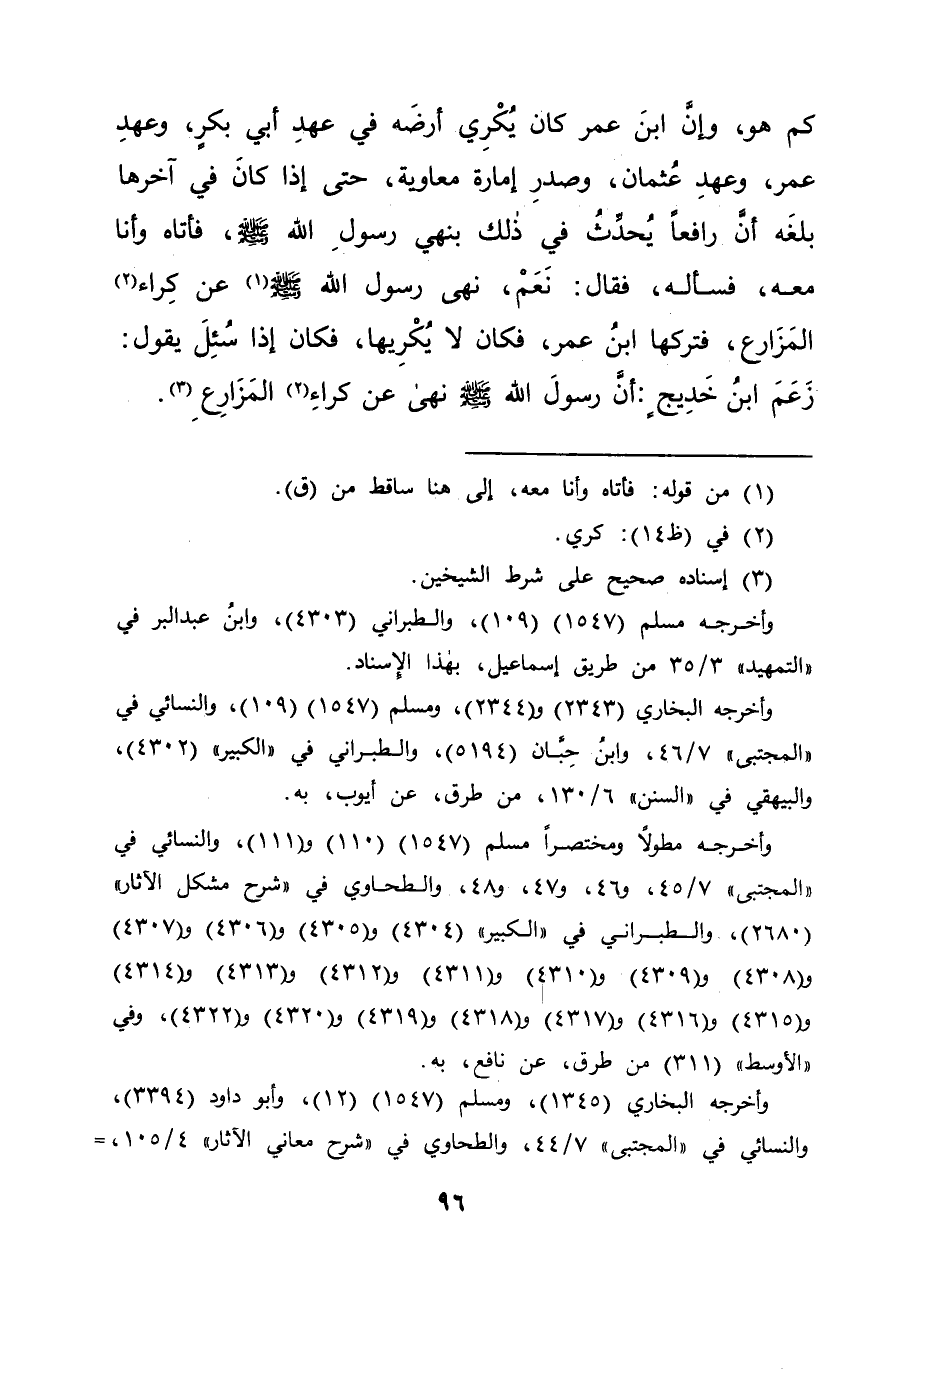 كم هو، وإنَّ ابنَ عمر كان يُكْرِي أرضَه في عهدِ أبي بكرٍ، وعهدِ
عمر، وعهدِ عُثمان، وصدرِ إمارة معاوية، حتى إذا كانَ في آخرها
بلغَه أنَّ رافعاً يُحدِّثُ في ذٰلك بنهي رسولِ الله ﷺ، فأتاه وأنا
معـه، فسـألـه، فقال: نَعَمْ، نهى رسول الله ﷺ(١) عن كِراء(٢)
المَزَارِع، فتركها ابنُ عمر، فكان لا يُكْرِيها، فكان إذا سُئِلَ يقول:
زَعَمَ ابنُ خَدِيجٍ: أنَّ رسولَ الله ﷺ نهىٰ عن كراءِ(٢) المَزَارِعِ(٣).
(١) من قوله: فأتاه وأنا معه، إلى هنا ساقط من (ق).
(٢) في (ظ١٤): كري.
(٣) إسناده صحيح على شرط الشيخين.
وأخـرجـه مسلم (١٥٤٧) (١٠٩)، والـطبراني (٤٣٠٣)، وابنُ عبدالبر في
«التمهيد» ٣٥/٣ من طريق إسماعيل، بهٰذا الإسناد.
وأخرجه البخاري (٢٣٤٣) و(٢٣٤٤)، ومسلم (١٥٤٧) (١٠٩)، والنسائي في
«المجتبى» ٤٦/٧، وابنُ حِبَّان (٥١٩٤)، والـطبـراني في «الكبير» (٤٣٠٢)،
والبيهقي في «السنن» ١٣٠/٦، من طرق، عن أيوب، به.
وأخـرجـه مطولاً ومختصـراً مسلم (١٥٤٧) (١١٠) و(١١١)، والنسائي في
«المجتبى» ٤٥/٧، و٤٦، و٤٧، و٤٨، والـطحـاوي في «شرح مشكل الآثار»
(٢٦٨٠)، والـطـبـرانـي في «الـكبير» (٤٣٠٤) و(٤٣٠٥) و(٤٣٠٦) و(٤٣٠٧)
و(٤٣٠٨) و(٤٣٠٩) و(٤٣١٠) و(٤٣١١) و(٤٣١٢) و(٤٣١٣) و(٤٣١٤)
و(٤٣١٥) و(٤٣١٦) و(٤٣١٧) و(٤٣١٨) و(٤٣١٩) و(٤٣٢٠) و(٤٣٢٢)، وفي
«الأوسط» (٣١١) من طرق، عن نافع، به.
وأخرجه البخاري (١٣٤٥)، ومسلم (١٥٤٧) (١٢)، وأبو داود (٣٣٩٤)،
والنسائي في «المجتبى» ٤٤/٧، والطحاوي في «شرح معاني الآثار» ١٠٥/٤، =
٩٦